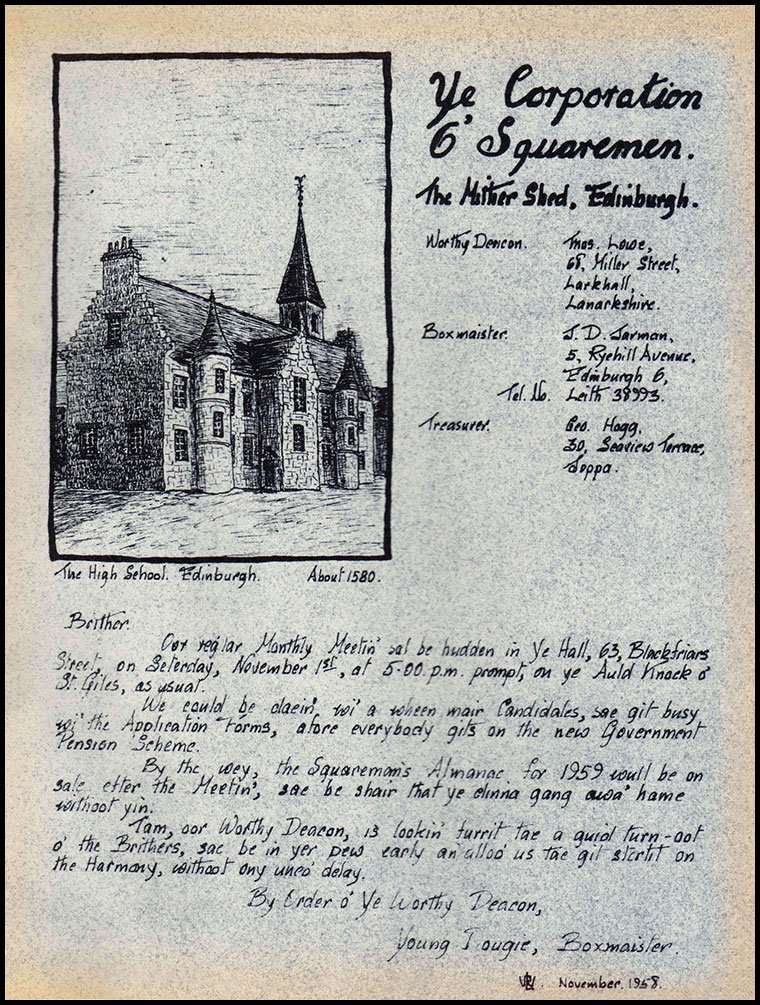 Ye Corporation
O' Squaremen.
The Mither Shed, Edinburgh.
Worthy Deacon. Thos. Lowe,
68, Miller Street,
Larkhall,
Lanarkshire.
Boxmaister. J. D. Jarman,
5, Ryehill Avenue,
Edinburgh 6,
Tel. No. Leith 38993.
Treasurer. Geo. Hogg,
30, Seaview Terrace,
Joppa.
The High School. Edinburgh. About 1580.
Brither.
Oor reg'lar Monthly Meetin' sal be hudden in Ye Hall, 63, Blackfriars
Street, on Seterday, November 1st, at 5-00 p.m. prompt, on ye Auld Knock o'
St. Giles, as usual.
We could be daein' wi' a wheen mair Candidates, sae git busy
wi' the Application Forms, afore everybody gits on the new Government
Pension Scheme.
By the wey, the Squareman's Almanac for 1959 wull be on
sale efter the Meetin', sae be shair that ye dinna gang awa' hame
withoot yin.
Tam, oor Worthy Deacon, is lookin' furrit tae a guid turn-oot
o' the Brithers, sae be in yer pew early an' alloo us tae git stertit on
the Harmony, without ony unco' delay.
By Order o' Ye Worthy Deacon,
Young Dougie, Boxmaister.
November. 1958.